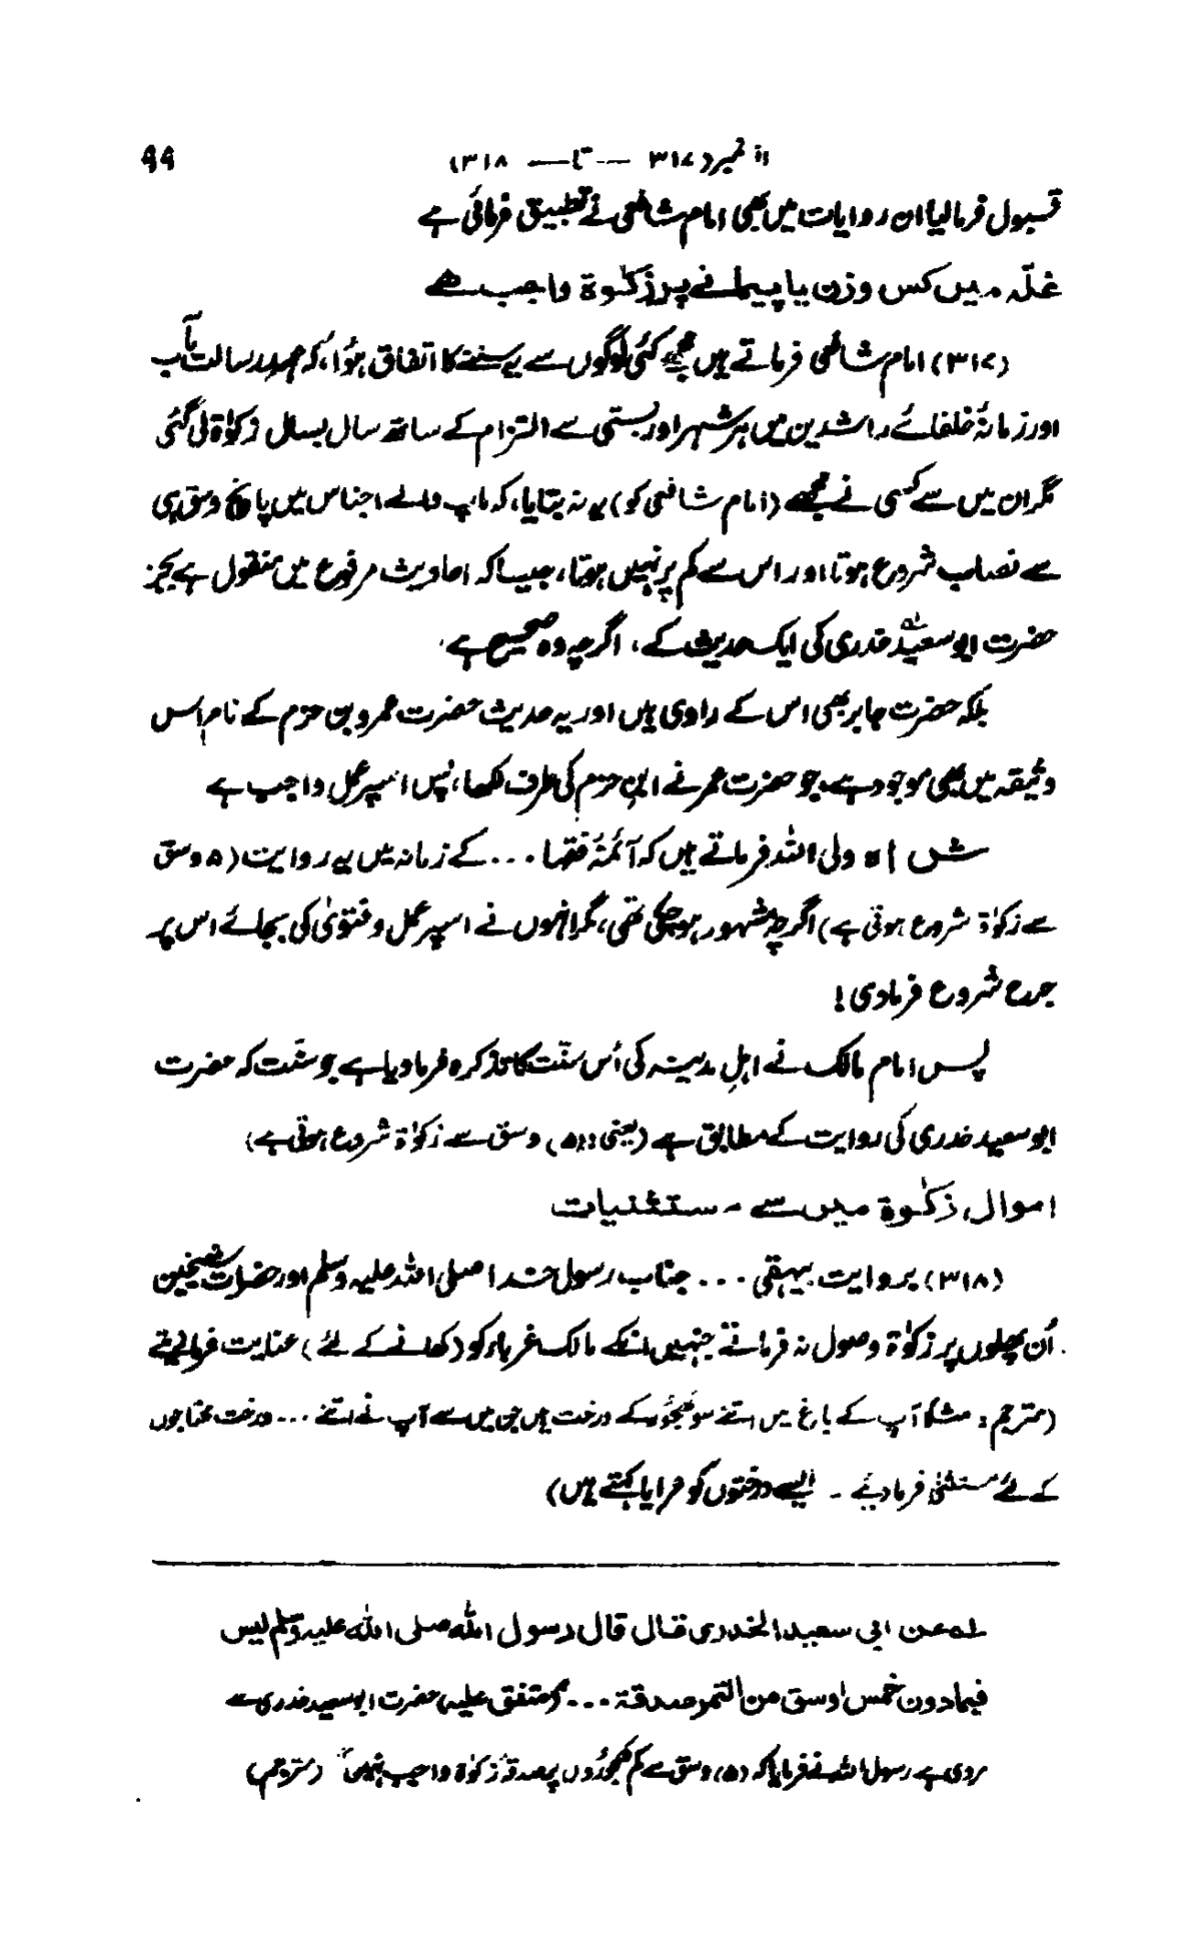 از نمبر (۳۱۷ — تا — ۳۱۸) ۹۹
قبول فرمالیا ان روایات میں بھی امام شافعی نے تطبیق فرمائی ہے
غلّہ میں کس وزن یا پیمانے پر زکوٰۃ واجب ہے
(۳۱۷) امام شافعی فرماتے ہیں مجھے کئی لوگوں سے یہ سننے کا اتفاق ہؤا، کہ عہد رسالت مآب
اور زمانۂ خلفائے راشدین میں ہر شہر اور بستی سے التزام کے ساتھ سال بسال زکوٰۃ لی گئی
مگر ان میں سے کسی نے مجھے (امام شافعی کو) یہ نہ بتایا، کہ ماپ والے اجناس میں پانچ وسق ہی
سے نصاب شروع ہوتا اور اس سے کم پر نہیں ہوتا، جیسا کہ احادیث مرفوع میں منقول ہے بجز
حضرت ابو سعیدؓ خدری کی ایک حدیث کے، اگرچہ وہ صحیح ہے۔
بلکہ حضرت جابر بھی اس کے راوی ہیں اور یہ حدیث حضرت عمرو بن حزم کے نام اس
وثیقہ میں بھی موجود ہے، جو حضرت عمر نے ابن حزم کی طرف لکھا، پس اسپر عمل واجب ہے
شاہ ولی اللہ فرماتے ہیں کہ آئمۂ فقہا ... کے زمانہ میں یہ روایت (۵ وسق
سے زکوٰۃ شروع ہوتی ہے) اگرچہ مشہور ہوچکی تھی، مگر انہوں نے اسپر عمل و فتویٰ کی بجائے اس پر
جرح شروع فرمادی!
پس امام مالک نے اہلِ مدینہ کی اُس سنّت کا تذکرہ فرمادیا ہے جو سنّت کہ حضرت
ابو سعید خدری کی روایت کے مطابق ہے (یعنی :: (۵) وسق سے زکوٰۃ شروع ہوتی ہے)
اموال زکوٰۃ میں سے مستثنیات
(۳۱۸) بروایت بیہقی ... جناب رسول خدا صلی اللہ علیہ وسلم اور حضرات شیخین
اُن پھلوں پر زکوٰۃ وصول نہ فرماتے جنہیں انکے مالک غرباء کو (کھانے کے لئے) عنایت فرمادیتے
(مترجم: مثلاً آپ کے باغ میں اتنے سو کھجور کے درخت ہیں جن میں سے آپ نے اتنے ... درخت محتاجوں
کے لئے مستثنیٰ فرمادیئے۔ ایسے درختوں کو عرایا کہتے ہیں)
لہ عن ابی سعید الخدری قال قال رسول اللہ صلی اللہ علیہ وسلم لیس
فیما دون خمس اوسق من التمر صدقۃ ... متفق علیہ، حضرت ابو سعید خدری سے
مروی ہے رسول اللہ نے فرمایا کہ (۵) وسق سے کم کھجوروں پر صدقہ زکوٰۃ واجب نہیں" (مترجم)